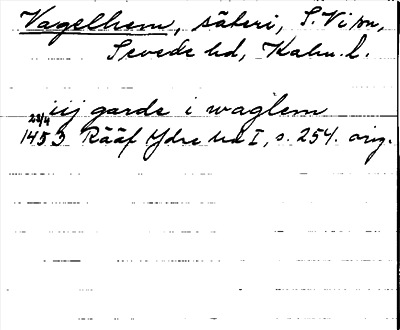 Vagelhem, säteri, S. Vi sn,
Sevede hd, Kalm. l.
iij garde i waglem
23/4 1453 Rääf Ydre hd I, s. 254. orig.